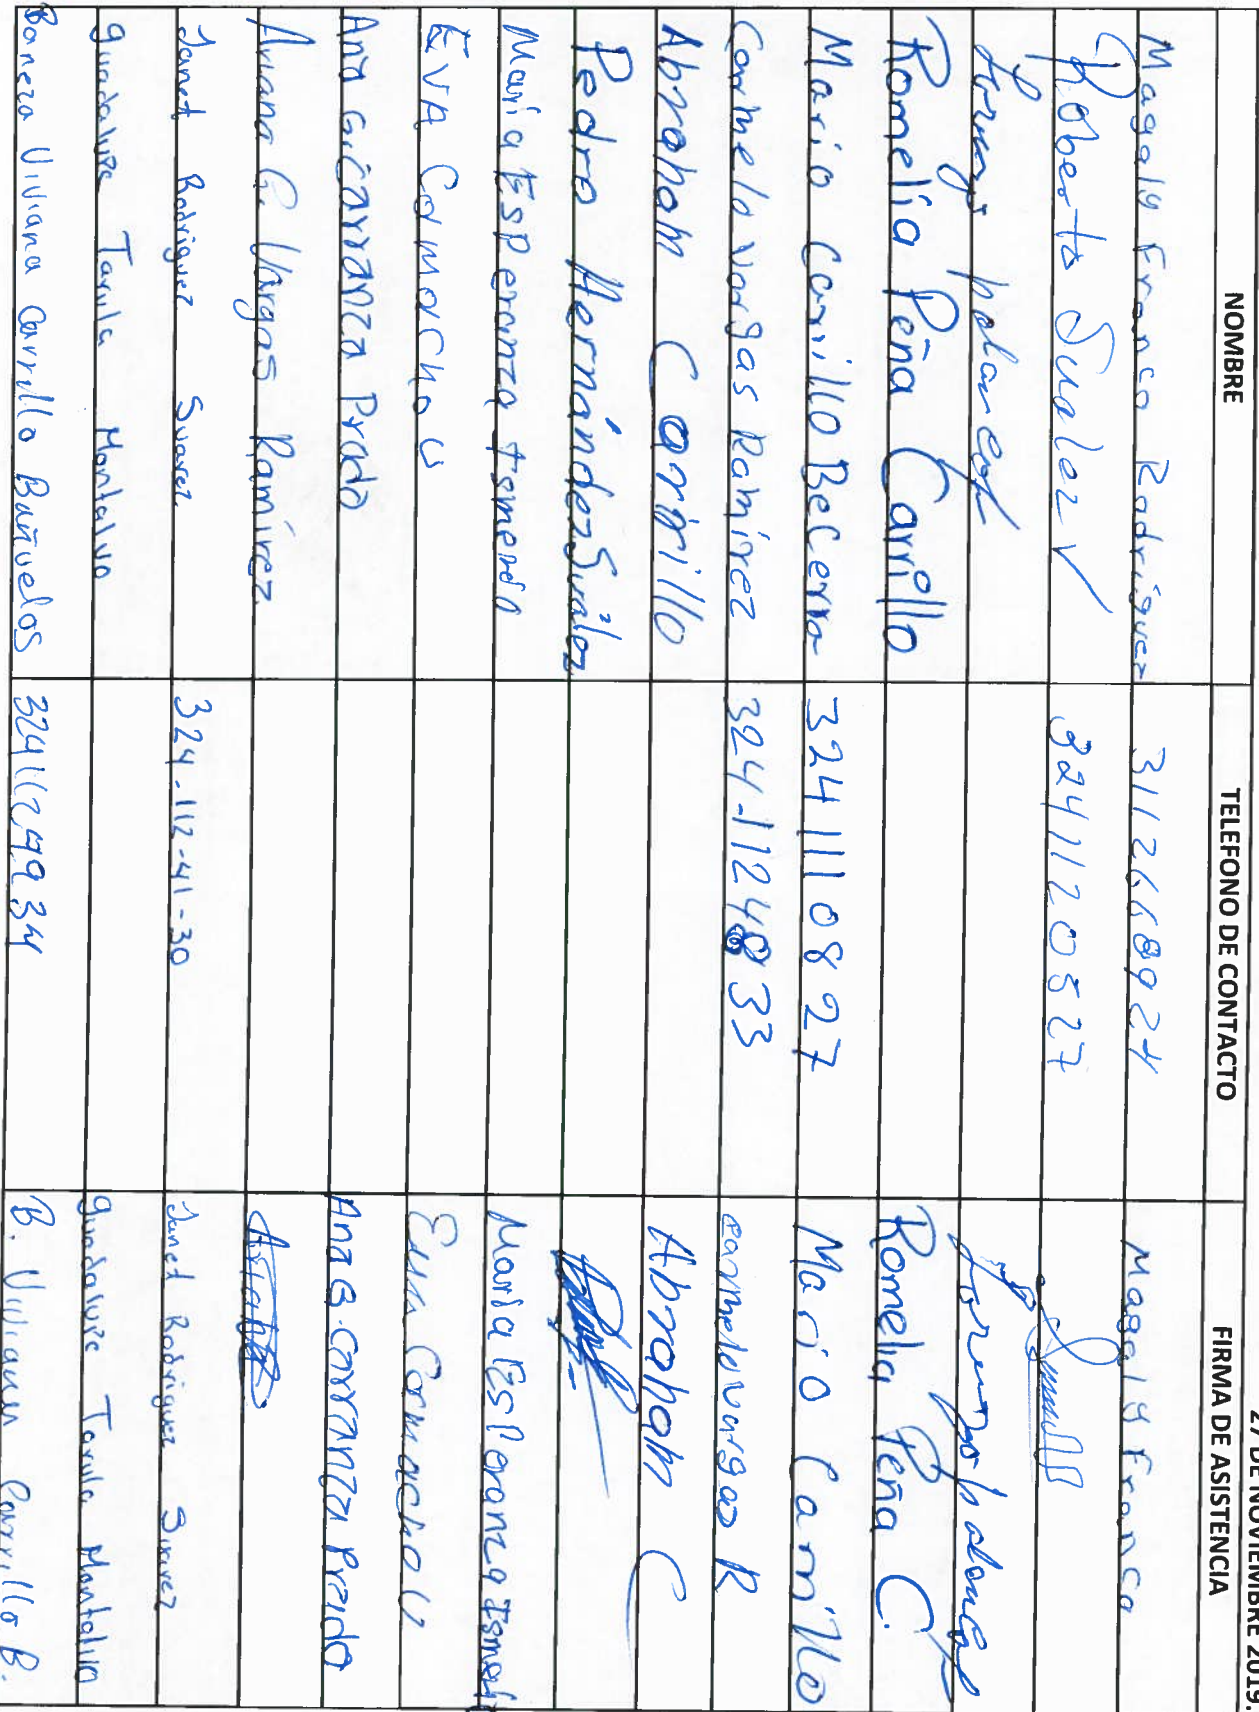 27 DE NOVIEMBRE 2019.
NOMBRE TELEFONO DE CONTACTO FIRMA DE ASISTENCIA
Magaly Franco Rodríguez 3112668924 Magaly Franco
Roberto Suarez V 3241120527
Romelia Peña Carrillo Romelia Peña C.
Mario Carrillo BeCerra 3241110827 Mario Carrillo
Carmela Vargas Ramirez 324-1124833 Carmela Vargas R
Abraham Carrillo Abraham C
Pedro Hernández Suárez
Maria ESPeranza Maria ESPeranza
EVA Camacho U Eva Camacho U
Ana G. Carranza Prado Ana G. Carranza Prado
Vargas Ramírez
Janet Rodriguez Suarez. 324-112-41-30 Janet Rodriguez Suarez
guadalupe Tarula Montalvo guadalupe Tarula Montalvo
Baneza Viviana Carrillo Bañuelos 3241124934 B. Viviana Carrillo B.